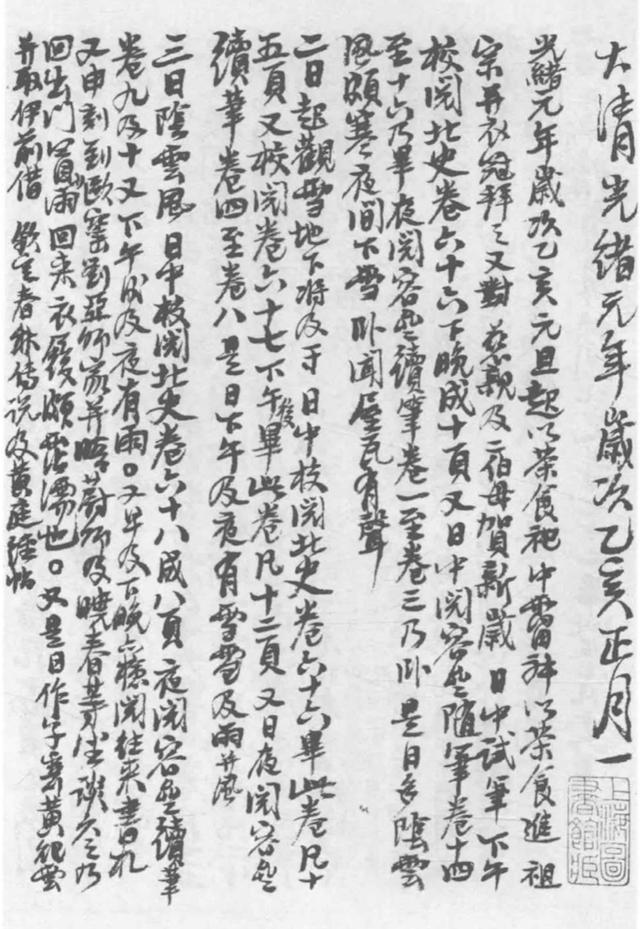 大清光緒元年歲次乙亥正月一
光緒元年歲次乙亥元旦起以茶食祀中霤神以茶食進祖
宗并衣冠拜之又對慈親及二伯母賀新歲日中試筆下午
校閱北史卷六十六下晚成十頁又日中閱容齋隨筆卷十四
至十六乃畢夜閱容齋續筆卷一至卷三乃卧是日多陰雲
風頗寒夜間下雪卧聞屋瓦有聲
二日起觀雪地下將及寸日中校閱北史卷六十六畢此卷凡十
五頁又校閱卷六十七下午後畢此卷凡十二頁又日夜閱容齋
續筆卷四至卷八是日下午及夜有雪雪及雨并風
三日陰雲風日中校閱北史卷六十八成八頁夜閱容齋續筆
卷九及十又下午及夜有雨又早及下晚檢閱往來書札
又申刻到劉亞師家并晤蔚師及曉春等坐談久之乃
回出門冒雨回來衣履頗霑濡也又是日作字寄黃
并取伊前借欽定春秋傳說及黃庭經帖
上海圖書館藏